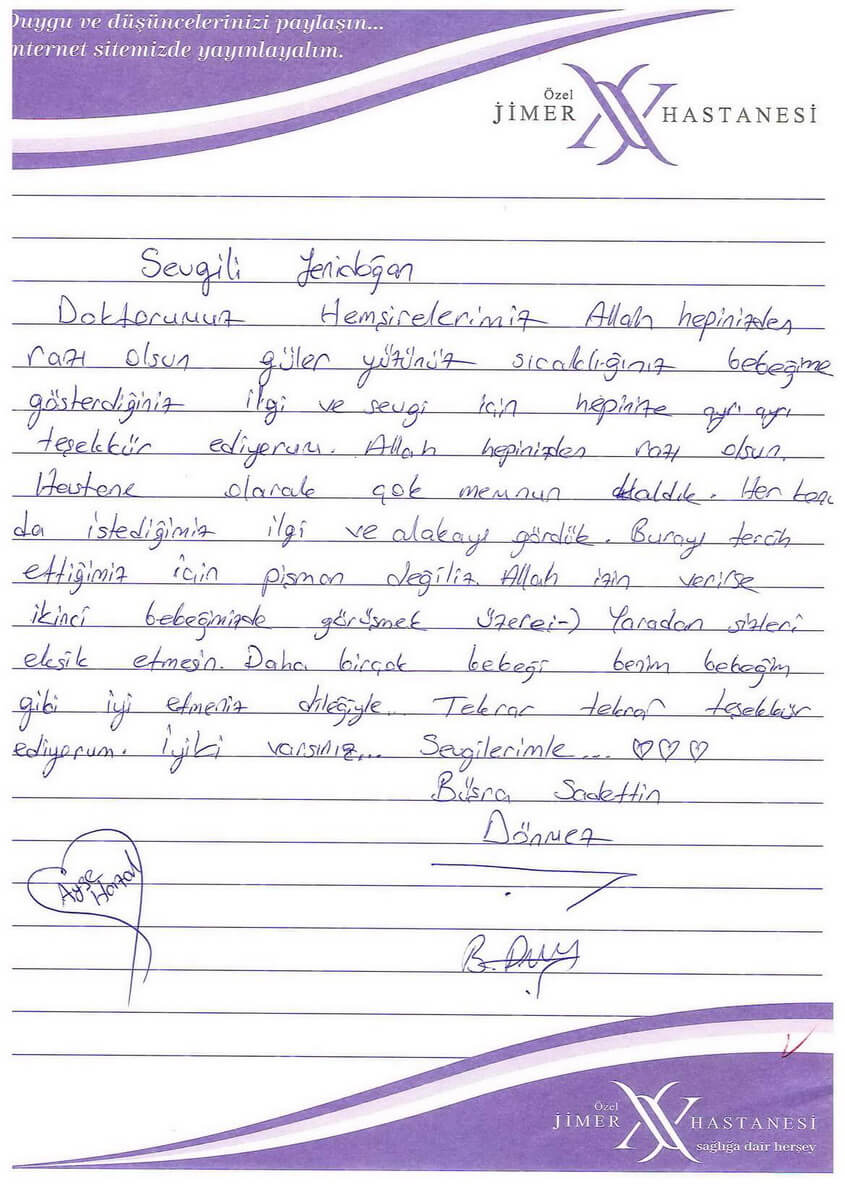 Duygu ve düşüncelerinizi paylaşın...
nternet sitemizde yayınlayalım.
Özel
JİMER HASTANESİ
Sevgili Yenidoğan
Doktorumuz Hemşirelerimiz Allah hepinizden
razı olsun güler yüzünüz sıcaklığınız bebeğime
gösterdiğiniz ilgi ve sevgi için hepinize ayrı ayrı
teşekkür ediyorum. Allah hepinizden razı olsun.
Hastene olarak çok memnun kaldık. Her konu
da istediğimiz ilgi ve alakayı gördük. Burayı tercih
ettiğimiz için pişman değiliz. Allah izin verirse
ikinci bebeğimizde görüşmek üzere:-) Yaradan sizleri
eksik etmesin. Daha birçok bebeği benim bebeğim
gibi iyi etmeniz dileğiyle.. Tekrar tekrar teşekkür
ediyorum. İyiki varsınız... Sevgilerimle... ♡♡♡
Büşra Sadettin
Dönmez
Ayşe
Hazal
Özel
JİMER HASTANESİ
sağlığa dair herşey